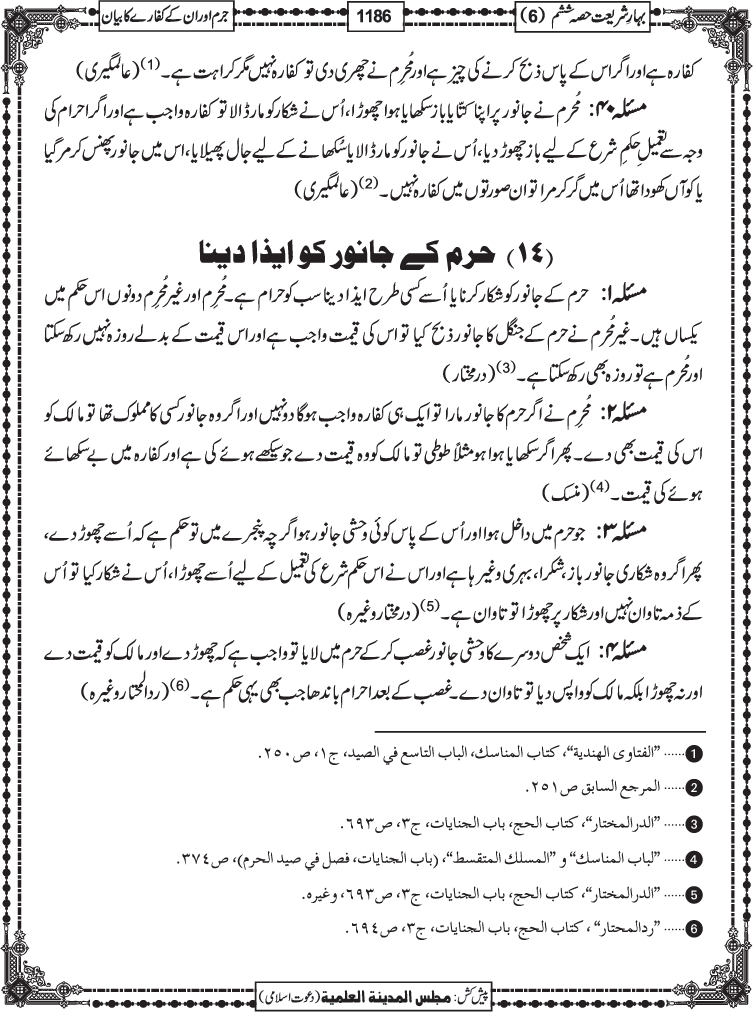 بہارِ شریعت حصہ ششم (6)
1186
جرم اور ان کے کفارے کا بیان
کفارہ ہے اور اگر اس کے پاس ذبح کرنے کی چیز ہے اور مُحرِم نے چھری دی تو کفارہ نہیں مگر کراہت ہے۔(1) (عالمگیری)
مسئلہ ۴۰: مُحرِم نے جانور پر اپنا کتّا یا باز سکھایا ہوا چھوڑا، اُس نے شکار کو مار ڈالا تو کفارہ واجب ہے اور اگر احرام کی
وجہ سے تعمیلِ حکمِ شرع کے لیے باز چھوڑ دیا، اُس نے جانور کو مار ڈالا یا سُکھانے کے لیے جال پھیلایا، اس میں جانور پھنس کر مر گیا
یا کوآں کھودا تھا اُس میں گر کر مرا تو ان صورتوں میں کفارہ نہیں۔(2) (عالمگیری)
(۱٤) حرم کے جانور کو ایذا دینا
مسئلہ ۱: حرم کے جانور کو شکار کرنا یا اُسے کسی طرح ایذا دینا سب کو حرام ہے۔ مُحرِم اور غیر مُحرِم دونوں اس حکم میں
یکساں ہیں۔ غیر مُحرِم نے حرم کے جنگل کا جانور ذبح کیا تو اس کی قیمت واجب ہے اور اس قیمت کے بدلے روزہ نہیں رکھ سکتا
اور مُحرِم ہے تو روزہ بھی رکھ سکتا ہے۔(3) (درمختار)
مسئلہ ۲: مُحرِم نے اگر حرم کا جانور مارا تو ایک ہی کفارہ واجب ہوگا دو نہیں اور اگر وہ جانور کسی کا مملوک تھا تو مالک کو
اس کی قیمت بھی دے۔ پھر اگر سکھایا ہوا ہو مثلاً طوطی تو مالک کو وہ قیمت دے جو سیکھے ہوئے کی ہے اور کفارہ میں بے سکھائے
ہوئے کی قیمت۔(4) (منسک)
مسئلہ ۳: جو حرم میں داخل ہوا اور اُس کے پاس کوئی وحشی جانور ہو اگرچہ پنجرے میں تو حکم ہے کہ اُسے چھوڑ دے،
پھر اگر وہ شکاری جانور باز، شکرا، بہری وغیرہا ہے اور اس نے اس حکمِ شرع کی تعمیل کے لیے اُسے چھوڑا، اُس نے شکار کیا تو اُس
کے ذمہ تاوان نہیں اور شکار پر چھوڑا تو تاوان ہے۔(5) (درمختار وغیرہ)
مسئلہ ۴: ایک شخص دوسرے کا وحشی جانور غصب کر کے حرم میں لایا تو واجب ہے کہ چھوڑ دے اور مالک کو قیمت دے
اور نہ چھوڑا بلکہ مالک کو واپس دیا تو تاوان دے۔ غصب کے بعد احرام باندھا جب بھی یہی حکم ہے۔(6) (ردالمحتار وغیرہ)
1 ...... ”الفتاوى الهندية“، كتاب المناسك، الباب التاسع في الصيد، ج١، ص٢٥٠.
2 ...... المرجع السابق ص٢٥١.
3 ...... ”الدرالمختار“، كتاب الحج، باب الجنايات، ج٣، ص٦٩٣.
4 ...... ”لباب المناسك“ و ”المسلك المتقسط“، (باب الجنايات، فصل في صيد الحرم)، ص٣٧٤.
5 ...... ”الدرالمختار“، كتاب الحج، باب الجنايات، ج٣، ص٦٩٣، وغيره.
6 ...... ”ردالمحتار“ ، كتاب الحج، باب الجنايات، ج٣، ص٦٩٤.
پیش کش: مجلس المدینة العلمیة (دعوتِ اسلامی)